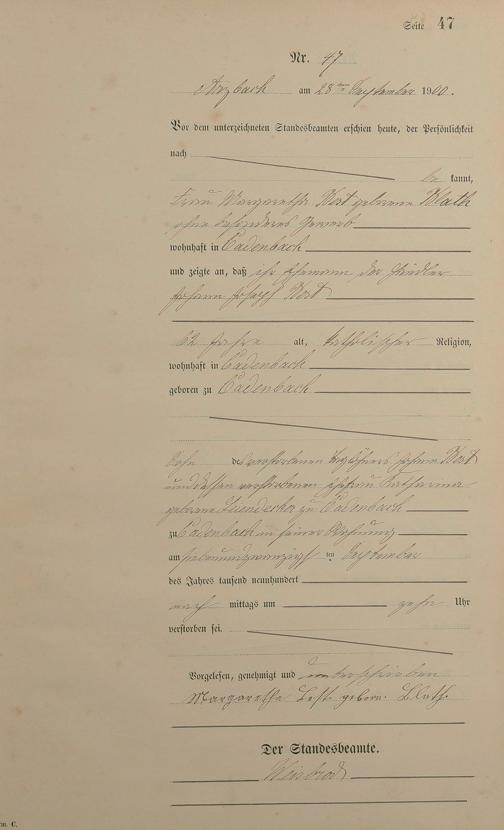 Seite 47
Nr. 47
Arzbach am 28ten September 1900.
Vor dem unterzeichneten Standesbeamten erschien heute, der Persönlichkeit
nach
be kannt,
Frau Margaretha geborene Blath
ohne besonderes Gewerb
wohnhaft in Cadenbach
und zeigte an, daß ihr Ehemann der
Johann Joseph
62 Jahre alt, katholischer Religion,
wohnhaft in Cadenbach
geboren zu Cadenbach
Sohn des verstorbenen Johann
und dessen verstorbenen Ehefrau Catharina
geborene zu Cadenbach
zu Cadenbach in seiner Wohnung
am siebenundzwanzigsten September
des Jahres tausend neunhundert
nach mittags um zehn Uhr
verstorben sei.
Vorgelesen, genehmigt und unterschrieben
Margaretha gebor. Blath.
Der Standesbeamte.
Weisbrod
C.